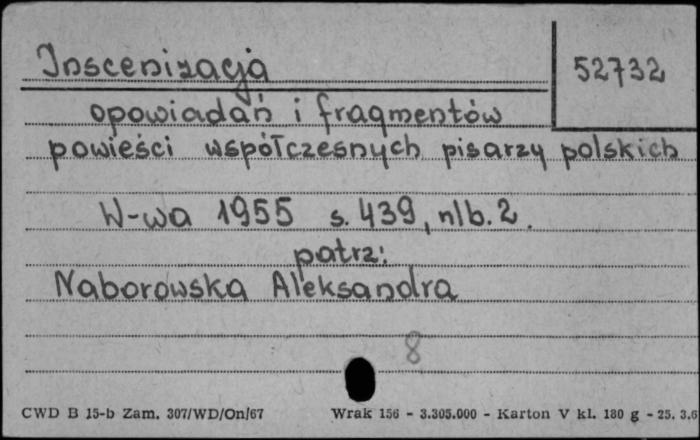 Inscenizacja
52732
opowiadań i fragmentów
powieści współczesnych pisarzy polskich
W-wa 1955 s. 439, nlb. 2.
patrz:
Naborowska Aleksandra
8
CWD B 15-b Zam. 307/WD/On/67 Wrak 156 - 3.305.000 - Karton V kl. 180 g - 25. 3.6